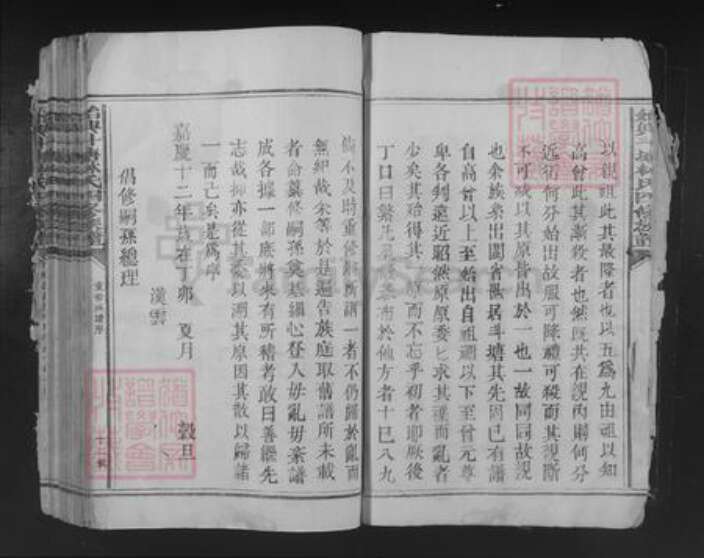 以親祖此其最隆者也以五為九由祖以知
高曾此其漸殺者也然既共在親內則何分
近衍何分始出故服可降禮可殺而其視斯
不可減以其原皆出於一也一故同同故親
也余族系出閩省遷居斗塘其先因已有譜
自高曾以上至始出自祖禰以下至曾元尊
卑各判遠近昭然原原委七求其違而亂者
少矣其始得其原而不忘乎初者耶厥後
丁口日繁先系布於他方者十已八九
倘不及時重修所謂一者不仍歸於亂而
無紀哉余等於是遍告族庭取舊譜所未載
者命纂修嗣孫奠基細心登入毋亂毋棄譜
成各據一部庶將來有所稽考敢曰善繼先
志哉抑亦從其委以溯其原因其散以歸諸
一而已矣是為序
嘉慶十二年歲在丁卯 夏月 穀旦
倡修嗣孫總理 漢雲